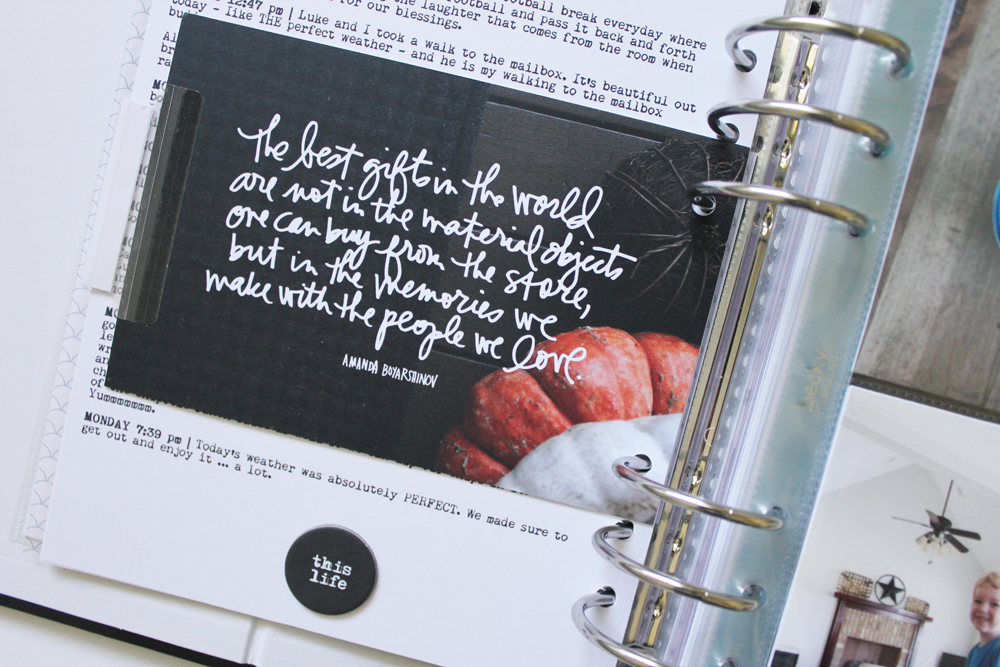 football break everyday where
football and pass it back and forth
the laughter that comes from the room when
for our blessings.
12:47 pm | Luke and I took a walk to the mailbox. It's beautiful out
today - like THE perfect weather - and he is my walking to the mailbox
The best gifts in the world
are not in the material objects
one can buy from the store,
but in the memories we
make with the people we love.
AMANDA BOYARSHINOV
Yummmmmm.
MONDAY 7:39 pm | Today's weather was absolutely PERFECT. We made sure to
get out and enjoy it ... a lot.
this
life